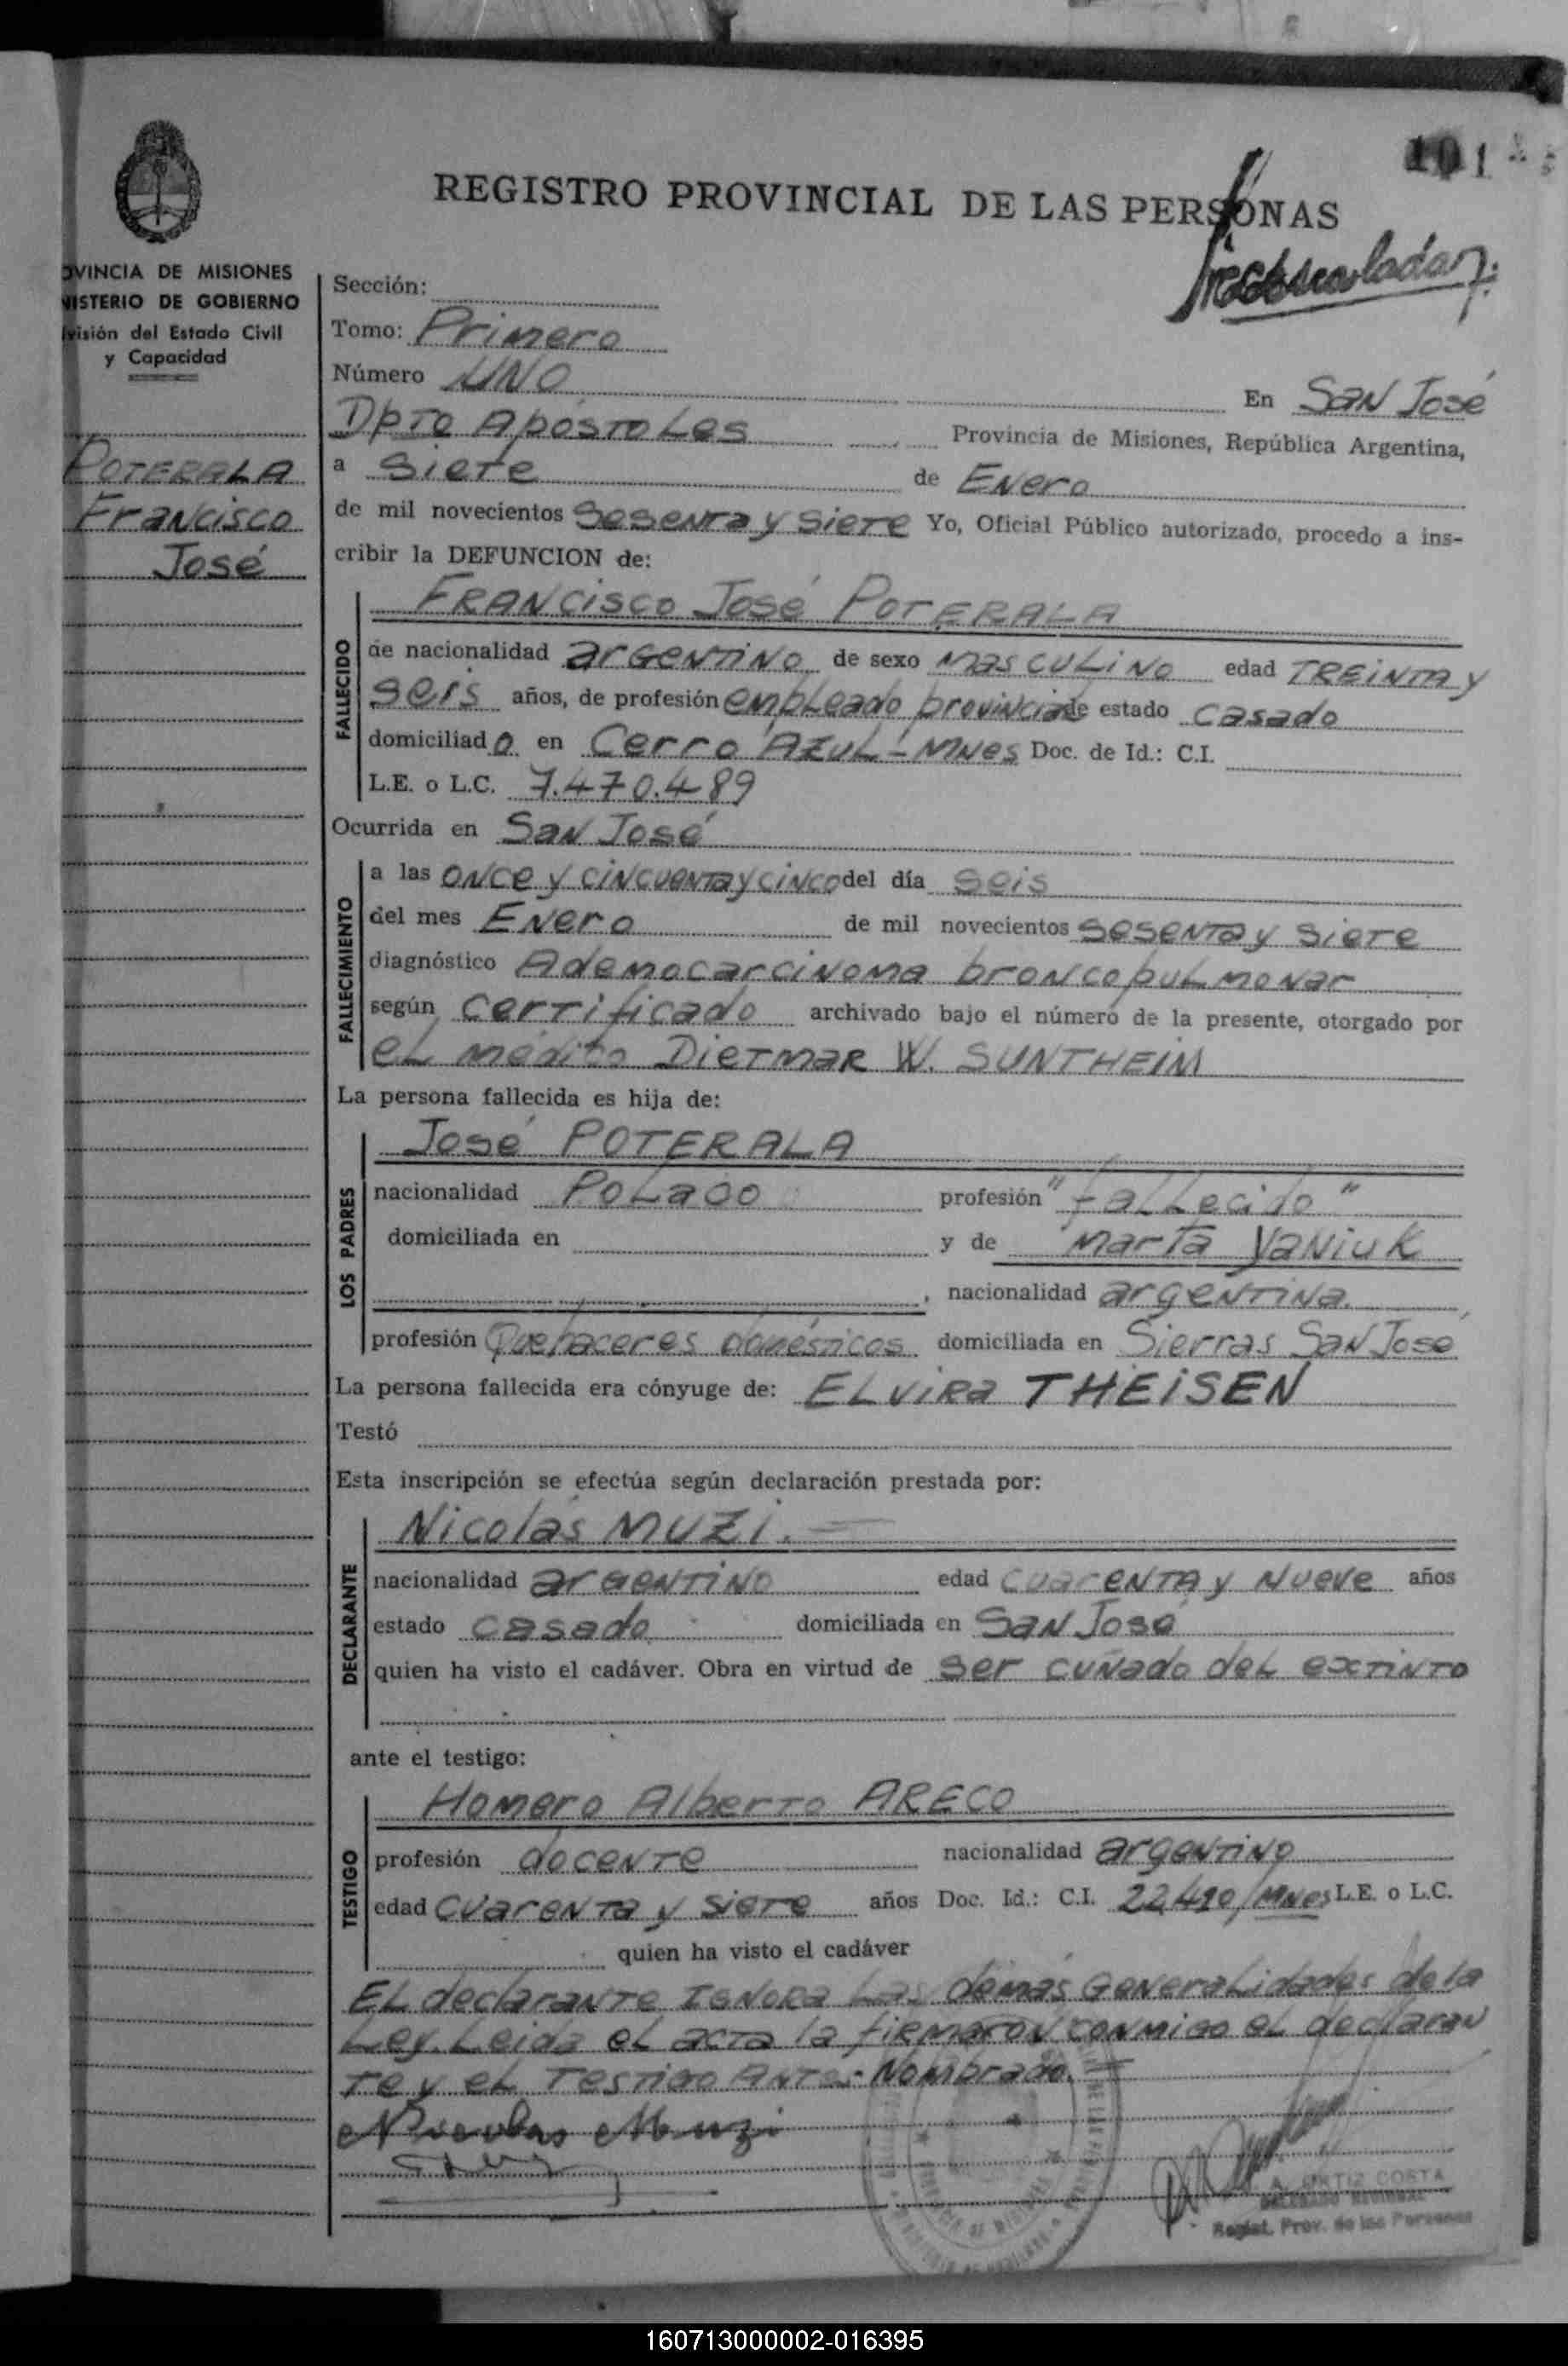 101
REGISTRO PROVINCIAL DE LAS PERSONAS
OVINCIA DE MISIONES
NISTERIO DE GOBIERNO
ivisión del Estado Civil
y Capacidad
POTERALA
Francisco
José
Sección:
Tomo: Primero
Número UNO En San José
Dpto Apóstoles Provincia de Misiones, República Argentina,
a siete de Enero
de mil novecientos sesenta y siete Yo, Oficial Público autorizado, procedo a ins-
cribir la DEFUNCION de:
FRANCISCO José POTERALA
FALLECIDO
de nacionalidad argentino de sexo masculino edad TREINTA y
seis años, de profesión empleado provincial de estado casado
domiciliado en Cerro Azul - Mnes Doc. de Id.: C.I.
L.E. o L.C. 7.470.489
Ocurrida en San José
FALLECIMIENTO
a las once y cincuenta y cinco del día seis
del mes Enero de mil novecientos sesenta y siete
diagnóstico Ademocarcinoma broncopulmonar
según certificado archivado bajo el número de la presente, otorgado por
el médico Dietmar W. SUNTHEIM
La persona fallecida es hija de:
LOS PADRES
José POTERALA
nacionalidad Polaco profesión "fallecido"
domiciliada en y de Marta Yaniuk
, nacionalidad argentina.
profesión Quehaceres domésticos domiciliada en Sierras San José
La persona fallecida era cónyuge de: ELVIRA THEISEN
Testó
Esta inscripción se efectúa según declaración prestada por:
DECLARANTE
Nicolás MUZI.=
nacionalidad argentino edad cuarenta y nueve años
estado casado domiciliada en San José
quien ha visto el cadáver. Obra en virtud de ser cuñado del extinto
ante el testigo:
TESTIGO
Homero Alberto ARECO
profesión docente nacionalidad argentino
edad cuarenta y siete años Doc. Id.: C.I. 22.410/Mnes L.E. o L.C.
quien ha visto el cadáver
El declarante ignora las demás generalidades de la
Ley. Leida el acta la firmaron conmigo el declaran
te y el testigo antes Nombrado.=
Nicolas Muzi
A. ORTIZ COSTA
DELEGADO REGIONAL
Regist. Prov. de las Personas
160713000002-016395